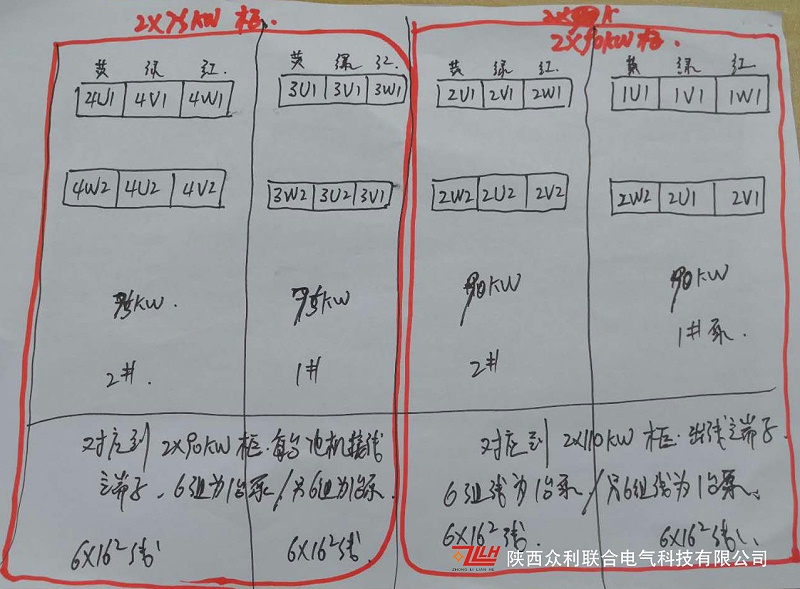 2X75KW 柜.
2X90KW柜.
黄 绿 红.
4U1 4V1 4W1
4W2 4U2 4V2
75KW.
2#.
黄 绿 红.
3U1 3V1 3W1
3W2 3U2 3V1
75KW
1#
黄 绿 红.
2U1 2V1 2W1
2W2 2U2 2V2
90KW
2#
黄 绿 红
1U1 1V1 1W1
2W2 2U1 2V1
90KW
1#泵.
对应到 2X90KW 柜.每台 电机接线
端子,6组为1台泵/另6组为1台泵.
6X16²线
6X16²线
对应到 2X110KW 柜.出线端子
6组线为1台泵/另6组线为1台泵.
6X16²线.
6X16²线
ZLLH
ZHONG LI LIAN HE
陕西众利联合电气科技有限公司